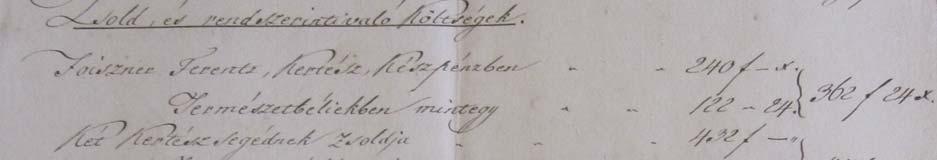 Zsold, és rendszerintivaló Költségek.
Foiszner Ferentz, Kertész, Készpénzben „ „ 240 f – x.
Természetbéliekben mintegy „ „ 122 „ 24. } 362 f 24 x.
Két Kertész segédnek Zsoldja „ „ 432 f – „